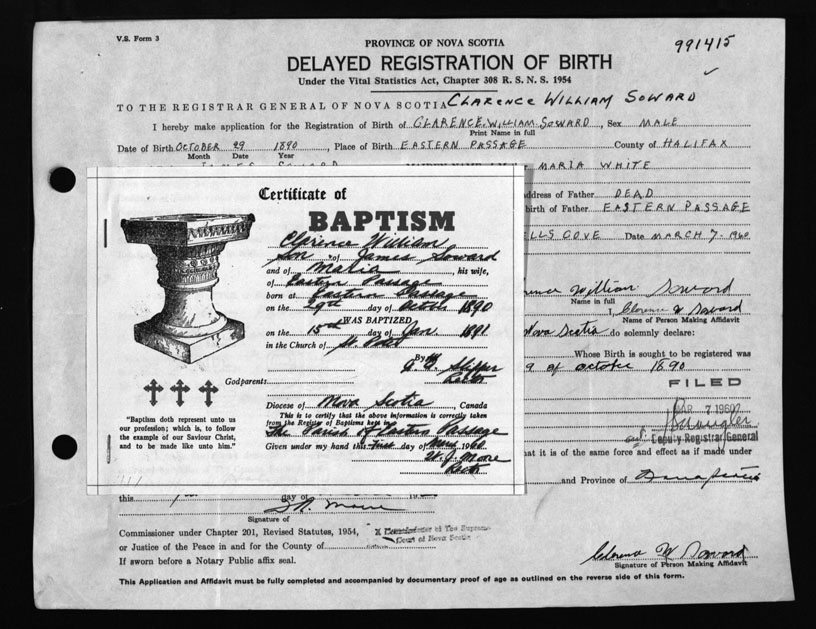 V.S. Form 3
PROVINCE OF NOVA SCOTIA
991415
DELAYED REGISTRATION OF BIRTH
Under the Vital Statistics Act, Chapter 308 R. S. N. S. 1954
TO THE REGISTRAR GENERAL OF NOVA SCOTIA CLARENCE WILLIAM SOWARD
I hereby make application for the Registration of Birth of CLARENCE WILLIAM SOWARD, Sex MALE
Print Name in full
Date of Birth OCTOBER 29 1890, Place of Birth EASTERN PASSAGE County of HALIFAX
Month Date Year
MARIA WHITE
address of Father DEAD
birth of Father EASTERN PASSAGE
ELLS COVE Date MARCH 7. 1960
Certificate of
BAPTISM
Clarence William
Son of James Soward
and of Maria his wife,
of Eastern Passage
born at Eastern Passage
on the 29th day of Octob 1890
WAS BAPTIZED
on the 15 day of Jan. 1891
in the Church of St. Peter
By
Rector
Godparents:
Diocese of Nova Scotia, Canada
This is to certify that the above information is correctly taken
from the Register of Baptisms kept in
The Parish of Eastern Passage
Given under my hand this day of 1960
Rector
"Baptism doth represent unto us
our profession; which is, to follow
the example of our Saviour Christ,
and to be made like unto him."
rence William Soward
Name in full
I, Clarence W Soward
Name of Person Making Affidavit
Nova Scotia do solemnly declare:
Whose Birth is sought to be registered was
9 of October 1890
FILED
MAR 7 1960
Deputy Registrar General
at it is of the same force and effect as if made under
and Province of Nova Scotia
this day of
Signature of
Commissioner under Chapter 201, Revised Statutes, 1954,
X Commissioner of The Supreme
Court of Nova Scotia
or Justice of the Peace in and for the County of
If sworn before a Notary Public affix seal.
Clarence W Soward
Signature of Person Making Affidavit
This Application and Affidavit must be fully completed and accompanied by documentary proof of age as outlined on the reverse side of this form.